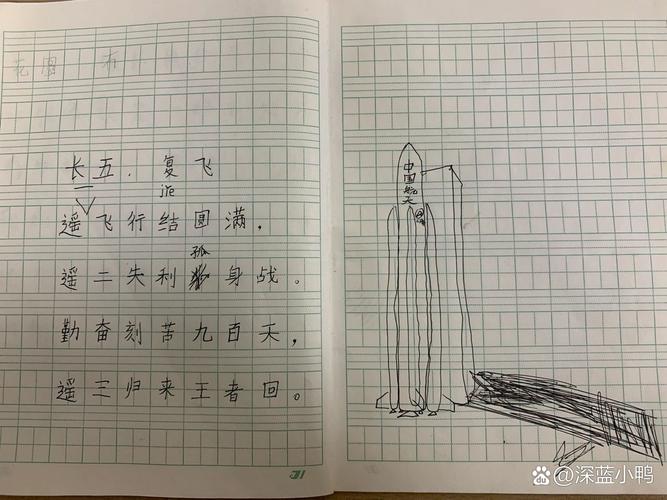 花园 布
长五.复飞
jie
遥飞行结圆满,
孤
遥二失利身战。
勤奋刻苦九百天,
遥三归来王者回。
中国航天
21
百度 @深蓝小鸭